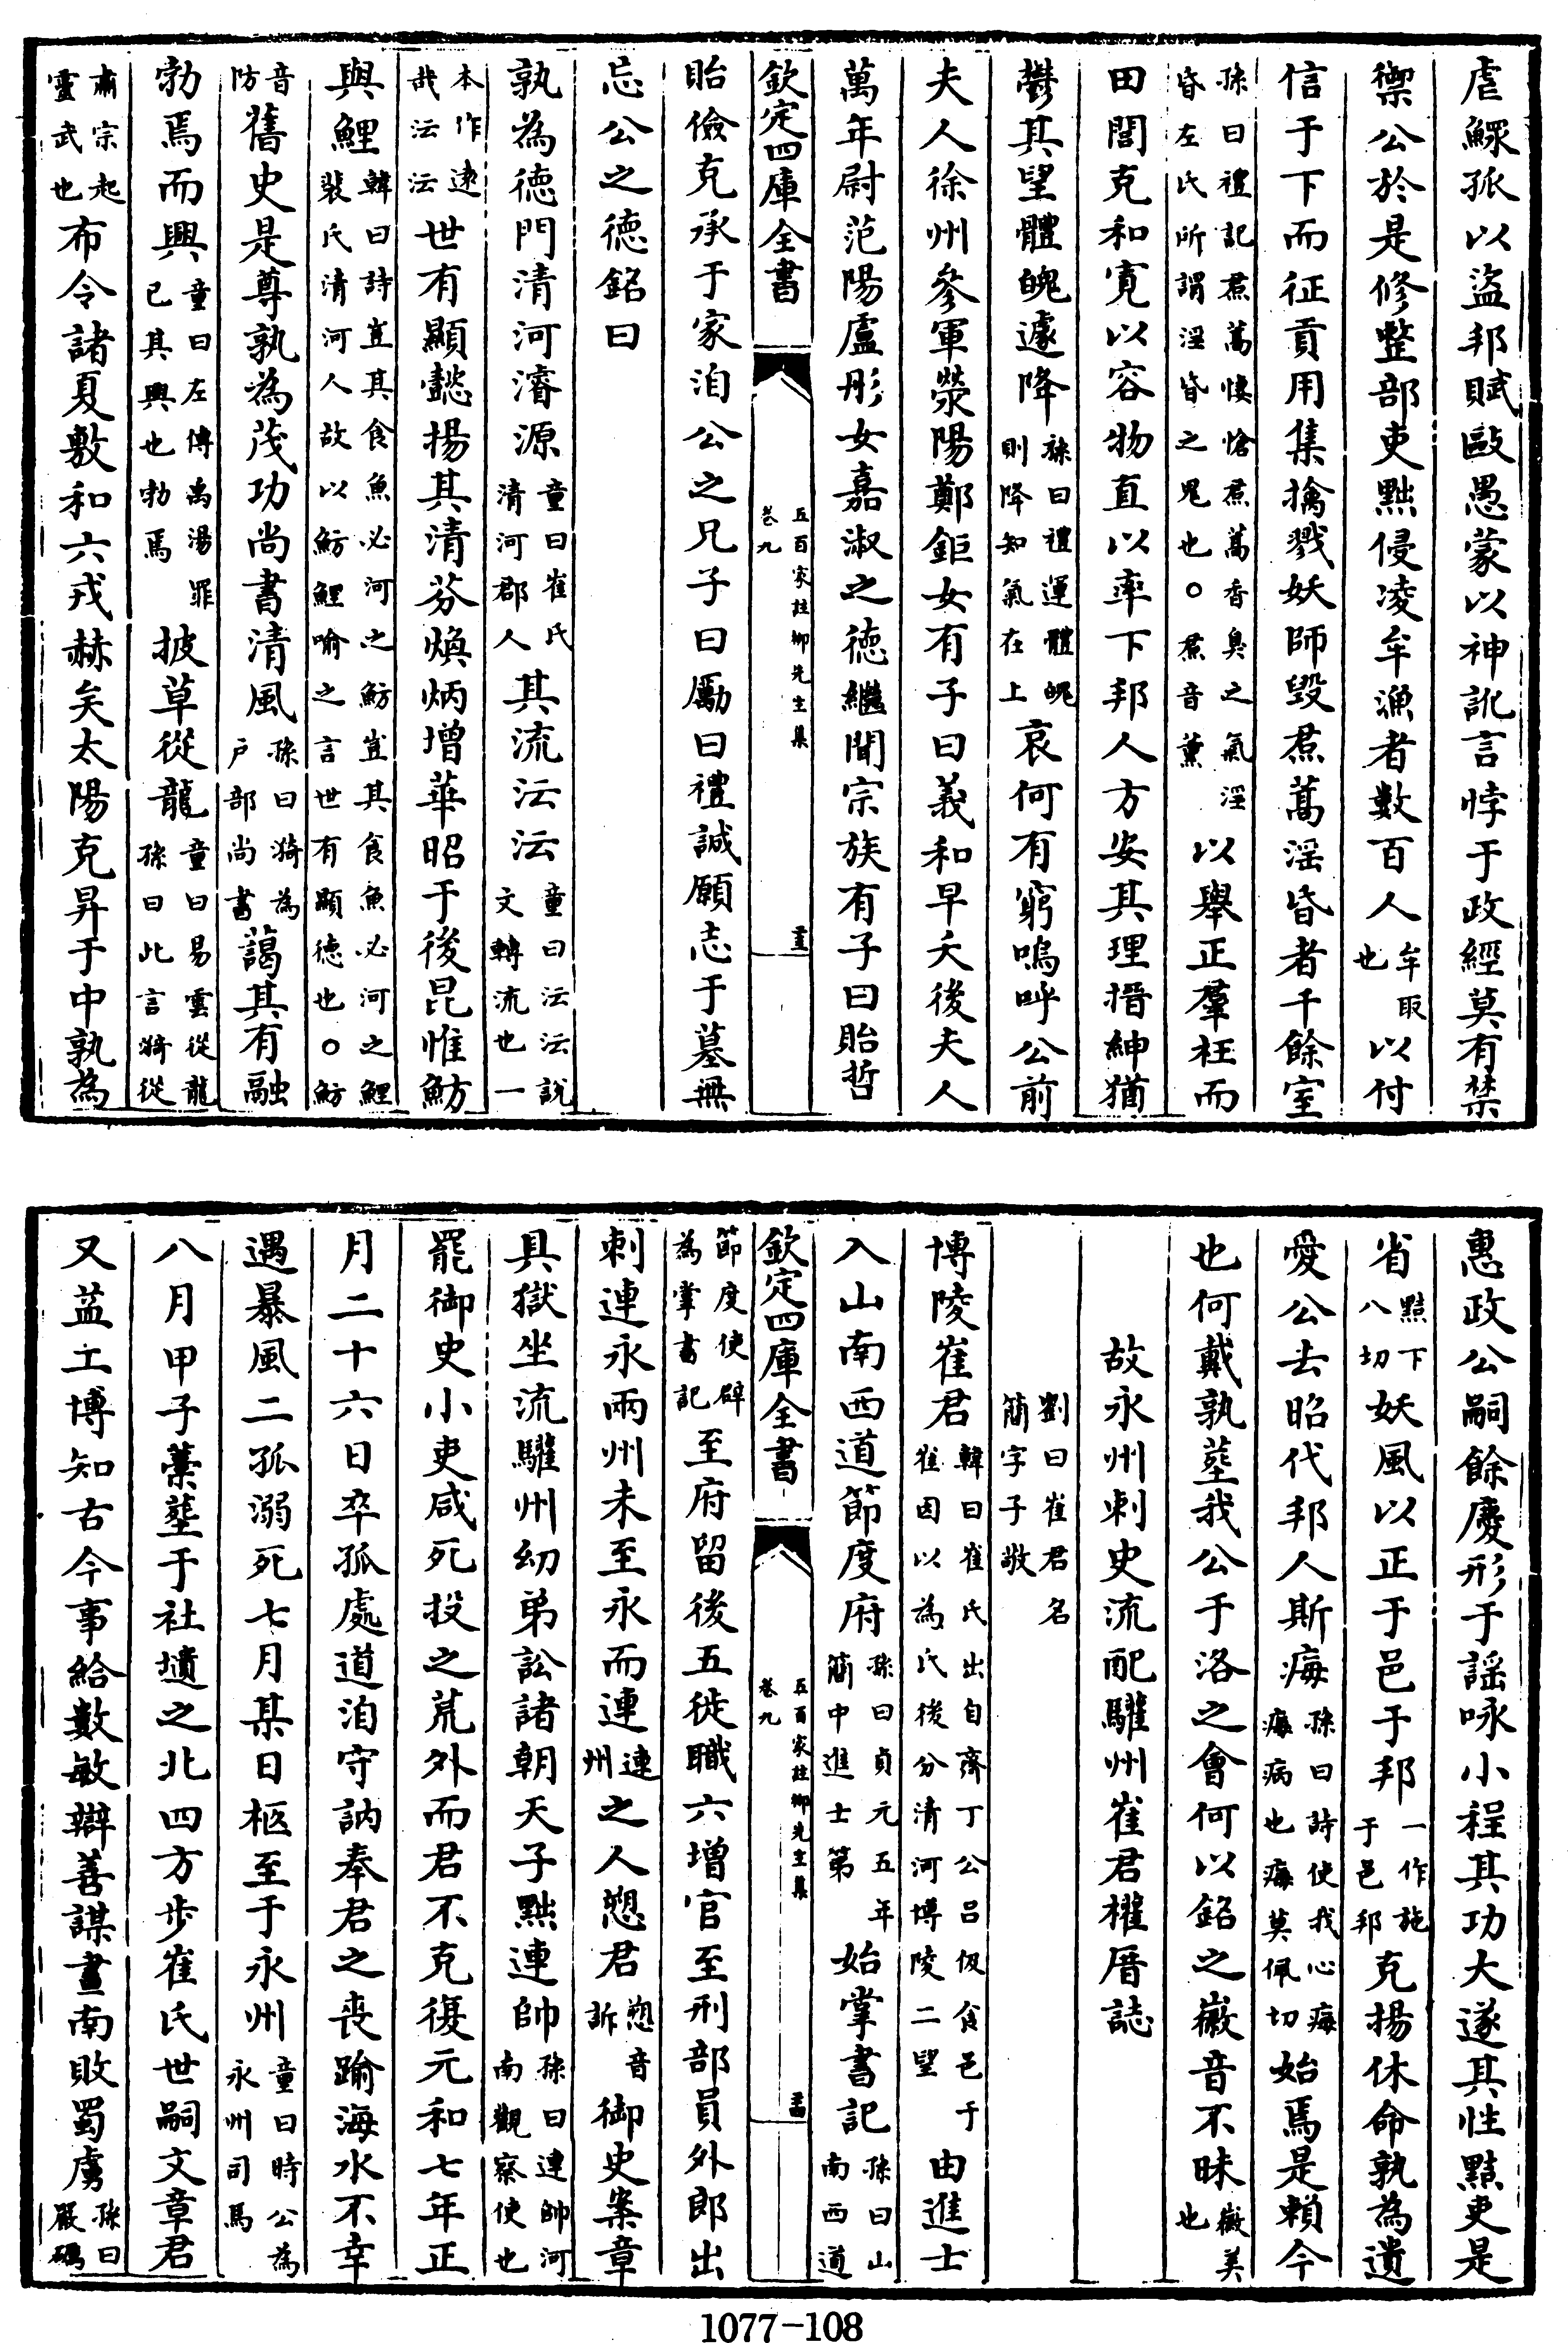 虐鰥孤以盜邦賦敺愚蒙以神訛言悖于政經莫有禁
禦公於是修整部吏黜侵凌牟漁者數百人牟取也以付
信于下而征貢用集擒戮妖師毀焄蒿淫昏者千餘室
孫曰禮記焄蒿悽愴焄蒿香臭之氣淫昏左氏所謂淫昏之鬼也○焄音薰以舉正羣枉而
田閭克和寛以容物直以率下邦人方安其理搢紳猶
鬱其望體魄遽降孫曰禮運體魄則降知氣在上哀何有窮嗚呼公前
夫人徐州參軍滎陽鄭鉅女有子曰義和早夭後夫人
萬年尉范陽盧彤女嘉淑之德繼聞宗族有子曰貽哲
欽定四庫全書 五百家註柳先生集卷九
貽儉克承于家洎公之兄子曰勵曰禮誠願志于墓無
忘公之德銘曰
孰為德門清河濬源童曰崔氏清河郡人其流沄沄童曰沄沄說文轉流也一
本作逮哉沄沄世有顯懿揚其清芬煥炳增華昭于後昆惟魴
與鯉韓曰詩豈其食魚必河之魴豈其食魚必河之鯉裴氏清河人故以魴鯉喻之言世有顯德也○魴
音防舊史是尊孰為茂功尚書清風孫曰漪為戶部尚書藹其有融
勃焉而興童曰左傳禹湯罪已其興也勃焉披草從龍童曰易雲從龍孫曰此言漪從
肅宗起靈武也布令諸夏敷和六戎赫矣太陽克昇于中孰為
惠政公嗣餘慶形于謡咏小程其功大遂其性黠吏是
省黠下八切妖風以正于邑于邦一作施于邑邦克揚休命孰為遺
愛公去昭代邦人斯痗孫曰詩使我心痗痗病也痗莫佩切始焉是賴今
也何戴孰塟我公于洛之會何以銘之徽音不昧徽美也
故永州刺史流配驩州崔君權厝誌
劉曰崔君名簡字子敬
博陵崔君韓曰崔氏出自齊丁公呂伋食邑于崔因以為氏後分清河博陵二望由進士
入山南西道節度府孫曰貞元五年簡中進士第始掌書記孫曰山南西道
欽定四庫全書 五百家註柳先生集卷九
節度使辟為掌書記至府留後五徙職六增官至刑部員外郎出
刺連永兩州未至永而連連州之人愬君愬音訴御史案章
具獄坐流驩州幼弟訟諸朝天子黜連帥孫曰連帥河南觀察使也
罷御史小吏咸死投之荒外而君不克復元和七年正
月二十六日卒孤處道洎守訥奉君之喪踰海水不幸
遇暴風二孤溺死七月某日柩至于永州童曰時公為永州司馬
八月甲子藁塟于社壝之北四方步崔氏世嗣文章君
又益工博知古今事給數敏辯善謀畫南敗蜀虜孫曰嚴礪
1077-108